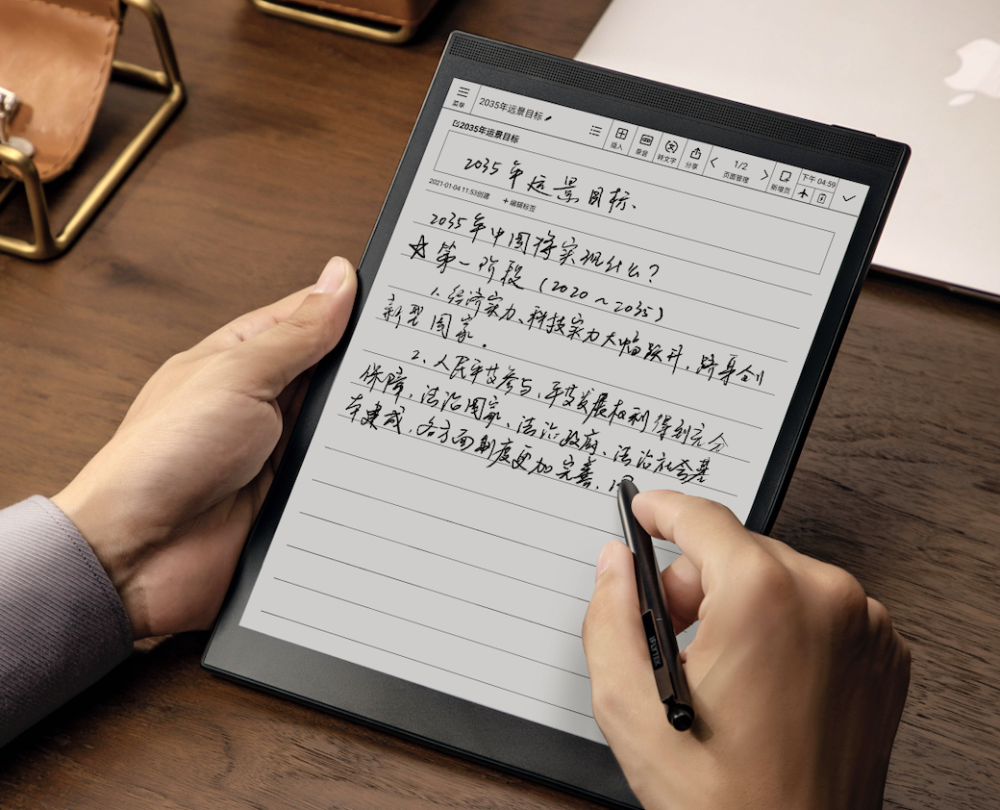 菜单
2035年远景目标
插入
录音
转文字
分享
1/2
页面管理
新增页
下午 04:59
2035年远景目标
2035年远景目标、
2021-01-04 11:53创建 +编辑标签
2035年中国将实现什么？
☆第一阶段（2020～2035）
1、经济实力、科技实力大幅跃升，跻身创
新型国家。
2、人民平等参与、平等发展权利得到充分
保障，法治国家、法治政府、法治社会基
本建成，各方面制度更加完善、国